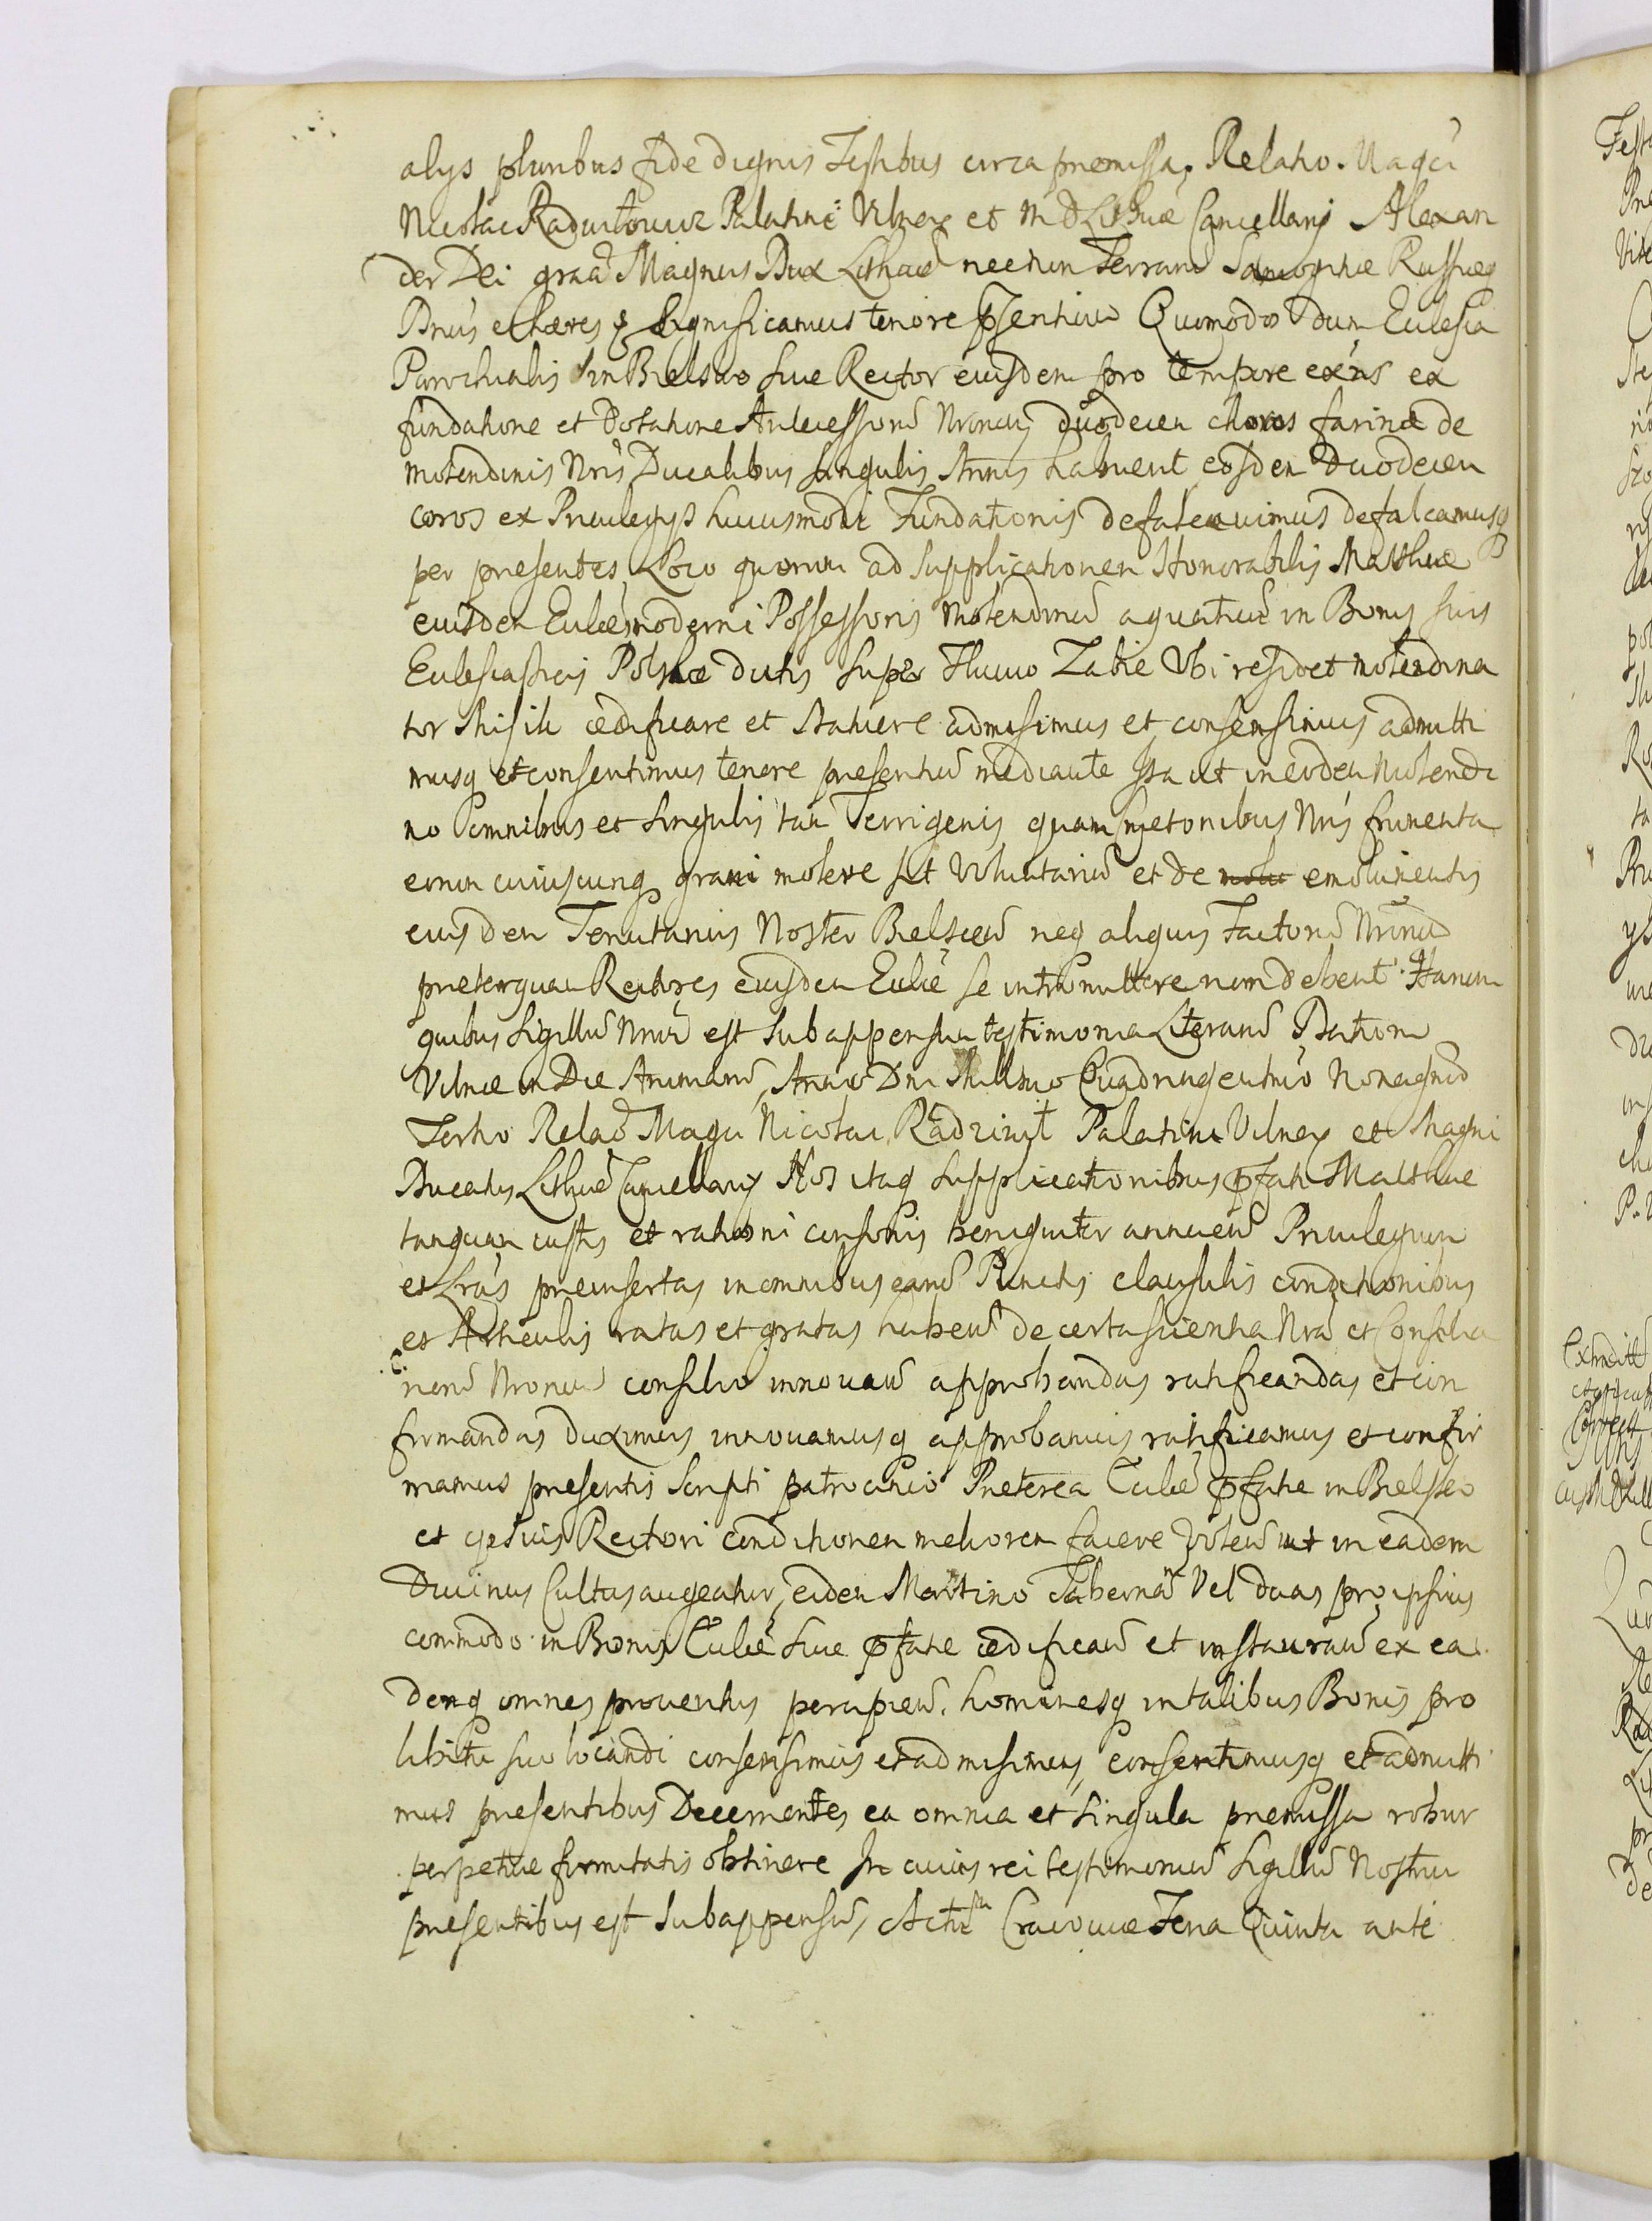 alys pluribus fide dignis Testibus circa premissa. Relatio. Magci
Nicolai Radwiłłowicz Palatini Vilnex et M D Lithuæ Cancellarij Alexan
der Dei graã Magnus Dux Lithuæ necnon Terrarũ Samogitiæ Russiæq
Dnus et hæres & Significamus tenore p̃sentiũ Quomodo dum Ecclesia
Parochialis in Bielsko siue Rector eiusdem pro tempore exñs ex
fundatione et Dotatione Antecessorũ Nrorum duodecem choros farinæ de
molendinis Nris Ducalibus singulis Annis habuerit eosdem Duodecem
coros ex Priuilegys huiusmodi Fundationis defalcauimus defalcamusq
per presentes Loco quorum ad supplicationem Honorabilis Matthiæ
eiusdem Ecclæ moderni Possessoris Molendinũ aquaticũ in Bonis suis
Eclesiasticis Polskæ dictis super Fluuio Zabie Vbi residet molendina
tor Misili ædificare et Statuere admisimus et consensimus admitti
musq et consentimus tenore presentiũ mediante Ita ut in eodem Molendi
no omnibus et singulis tam Terrigenis quam Kmetonibus Nris frumenta
eorum cuiuscunq grani molere sit Voluntariũ et de emolumentis
eiusdem Tenutarius Noster Bielscen̄ neq aliquis Factorũ Nrorũ
preterquam Rectores eiusdem Ecliæ se intromittere non debent. Harum
quibus Sigillũ Nrũ est subappensum testimonia Literarũ Datum
Vilnæ in Die Animarũ, Anno Dni Millmo Quadringentmo Nonagmo
Tertio Relaõ Magci Nicolai Radziwił Palatini Vilnex et Magni
Ducatus Lithuæ Cancellarij Nos itaq supplicationibus p̃fati Matthiæ
tanquam iustis et rationi consonis benigniter annuen̄ Priuilegium
et Lras preinsertas in omnibus earũ Punctis clausulis conditionibus
et Articulis ratas et gratas haben̄ de certa scientia Nra et Consilia
riorũ Nrorum consilio innouan̄ approbandas ratificandas et con
firmandas duximus innouamusq approbamus ratificamus et confir
mamus presentis scripti patrocinio Preterea Ecliæ p̃fatæ in Bielsko
et eiusuis Rectori conditionem meliorem facere Volen̄ ut in eadem
Diuinus Cultus augeatur, eidem Martino Tabernam Vel duas pro ipsius
commodo in Bonis Ecliæ siue p̃fatæ ædifican̄ et instauran̄ ex ea
demq omnes prouentus percipien̄. hominesq in talibus Bonis pro
libitu suo locandi consensimus et admisimus, consentimusq et admitti
mus presentibus Decernentes ea omnia et singula premissa robur
perpetuæ firmitatis obtinere In cuius rei testimonium Sigillũ Nostrum
presentibus est subappensũ, Actũ Cracouiæ Feria Quinta ante